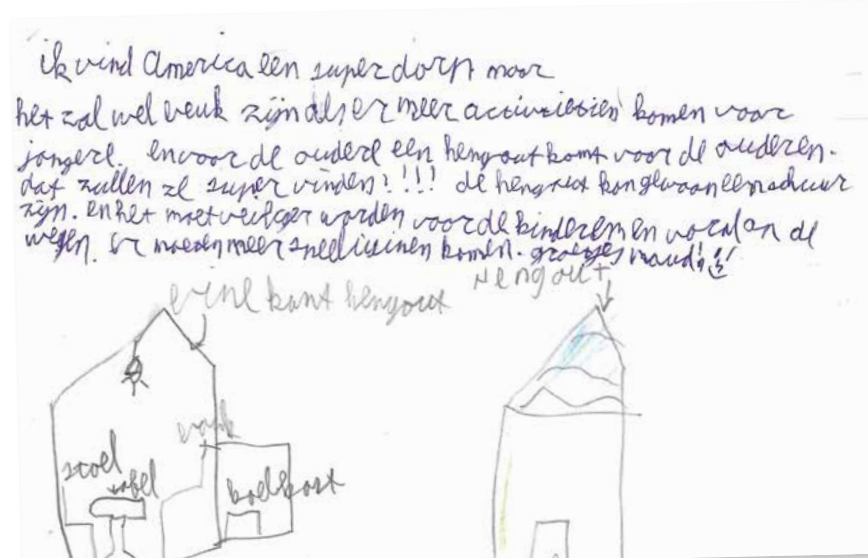 ik vind America een super dorp maar
het zal wel leuk zijn als er meer activietien komen voor
jongere. en voor de oudere een hengout komt voor de ouderen.
dat zullen ze super vinden!!!! de hengout kan gewoon een schuur
zijn. en het moet veiliger worden voor de kinderen en vooral an de
wegen. Er moeten meer komen. groetjes maud!
hengout
eine kant hengout
bank
stoel
tafel
koelkast